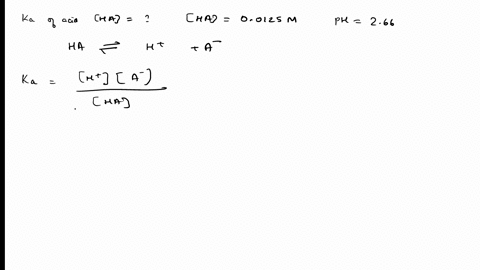 Ka of acid [HA] = ? [HA] = 0.0125 M PH = 2.66
HA ⇌ H⁺ + A⁻
Ka = [H⁺] [A⁻]
[HA]